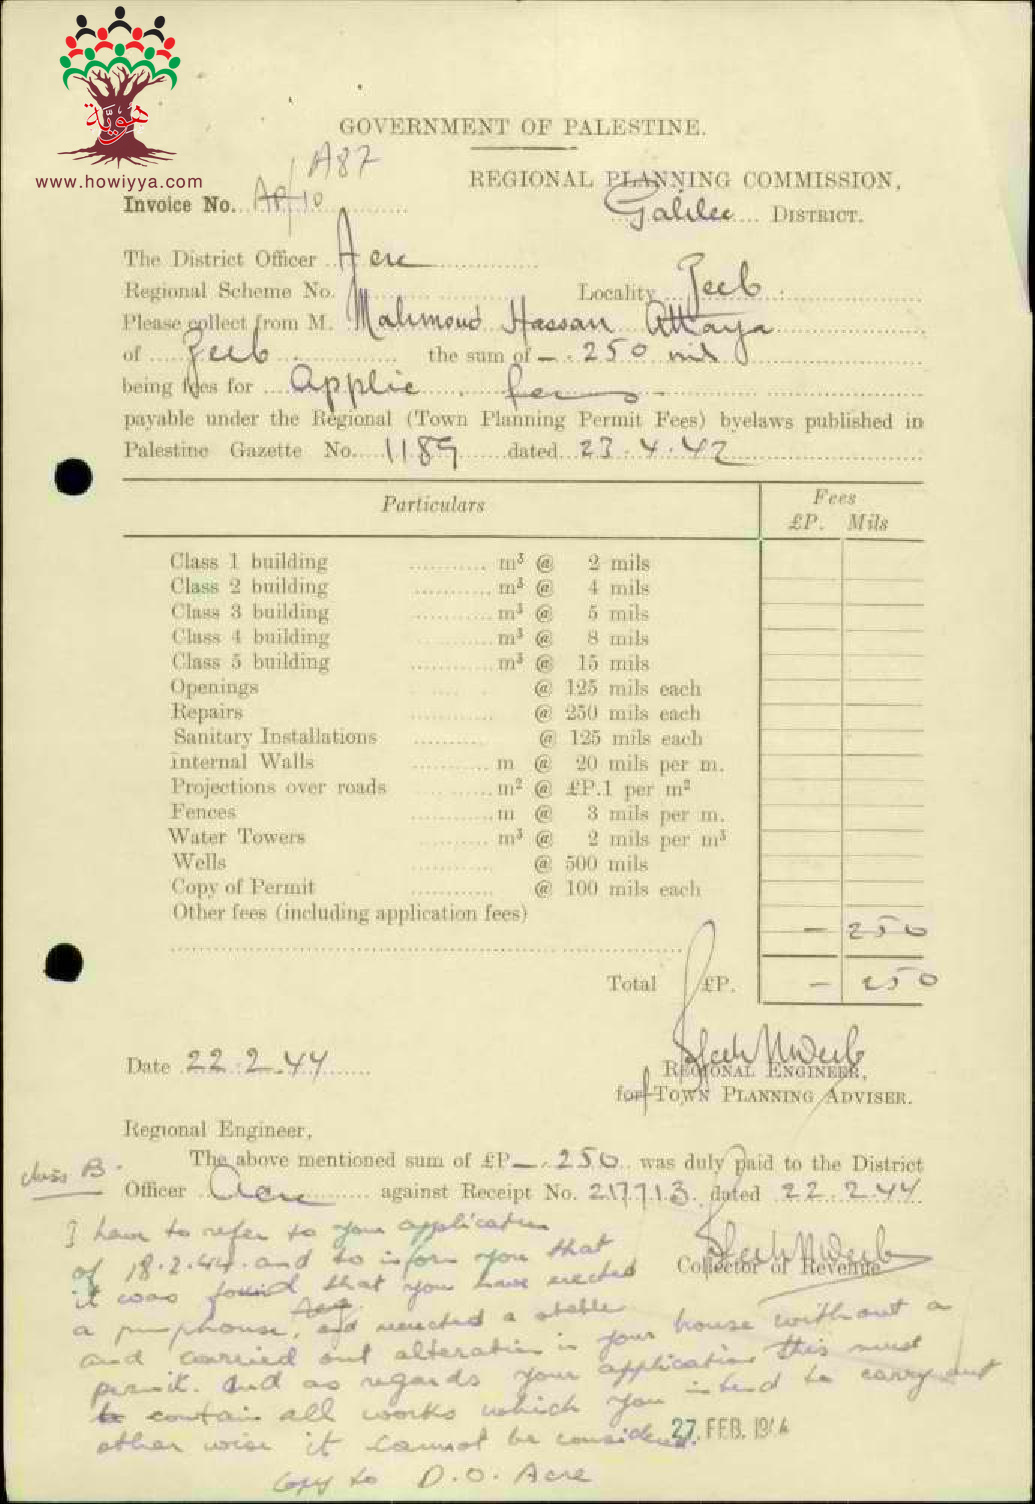 هويّة
www.howiyya.com
GOVERNMENT OF PALESTINE.
A87
REGIONAL PLANNING COMMISSION,
Invoice No. 10
Galilee DISTRICT.
The District Officer Acre
Regional Scheme No. Locality Zeeb
Please collect from M. Mahmoud Hassan Attaya
of Zeeb the sum of - . 250 mil
being fees for Applic. fees
payable under the Regional (Town Planning Permit Fees) byelaws published in
Palestine Gazette No. 1189 dated 23.4.42
Particulars Fees
£P. Mils
Class 1 building m³ @ 2 mils
Class 2 building m³ @ 4 mils
Class 3 building m³ @ 5 mils
Class 4 building m³ @ 8 mils
Class 5 building m³ @ 15 mils
Openings @ 125 mils each
Repairs @ 250 mils each
Sanitary Installations @ 125 mils each
Internal Walls m @ 20 mils per m.
Projections over roads m² @ £P.1 per m²
Fences m @ 3 mils per m.
Water Towers m³ @ 2 mils per m³
Wells @ 500 mils
Copy of Permit @ 100 mils each
Other fees (including application fees)
- 250
Total £P. - 250
Date 22.2.44
REGIONAL ENGINEER,
for TOWN PLANNING ADVISER.
Regional Engineer,
The above mentioned sum of £P - . 250 was duly paid to the District
class B.
Officer Acre against Receipt No. 217713 dated 22.2.44
I have to refer to your application
of 18.2.44 and to inform you that
Collector of Revenue
it was found that you have erected
a pumphouse, and erected a stable
and carried out alteration in your house without a
permit. And as regards your application this must
contain all works which you intend to carry out
other wise it cannot be considered.
27. FEB. 1944
Copy to D.O. Acre